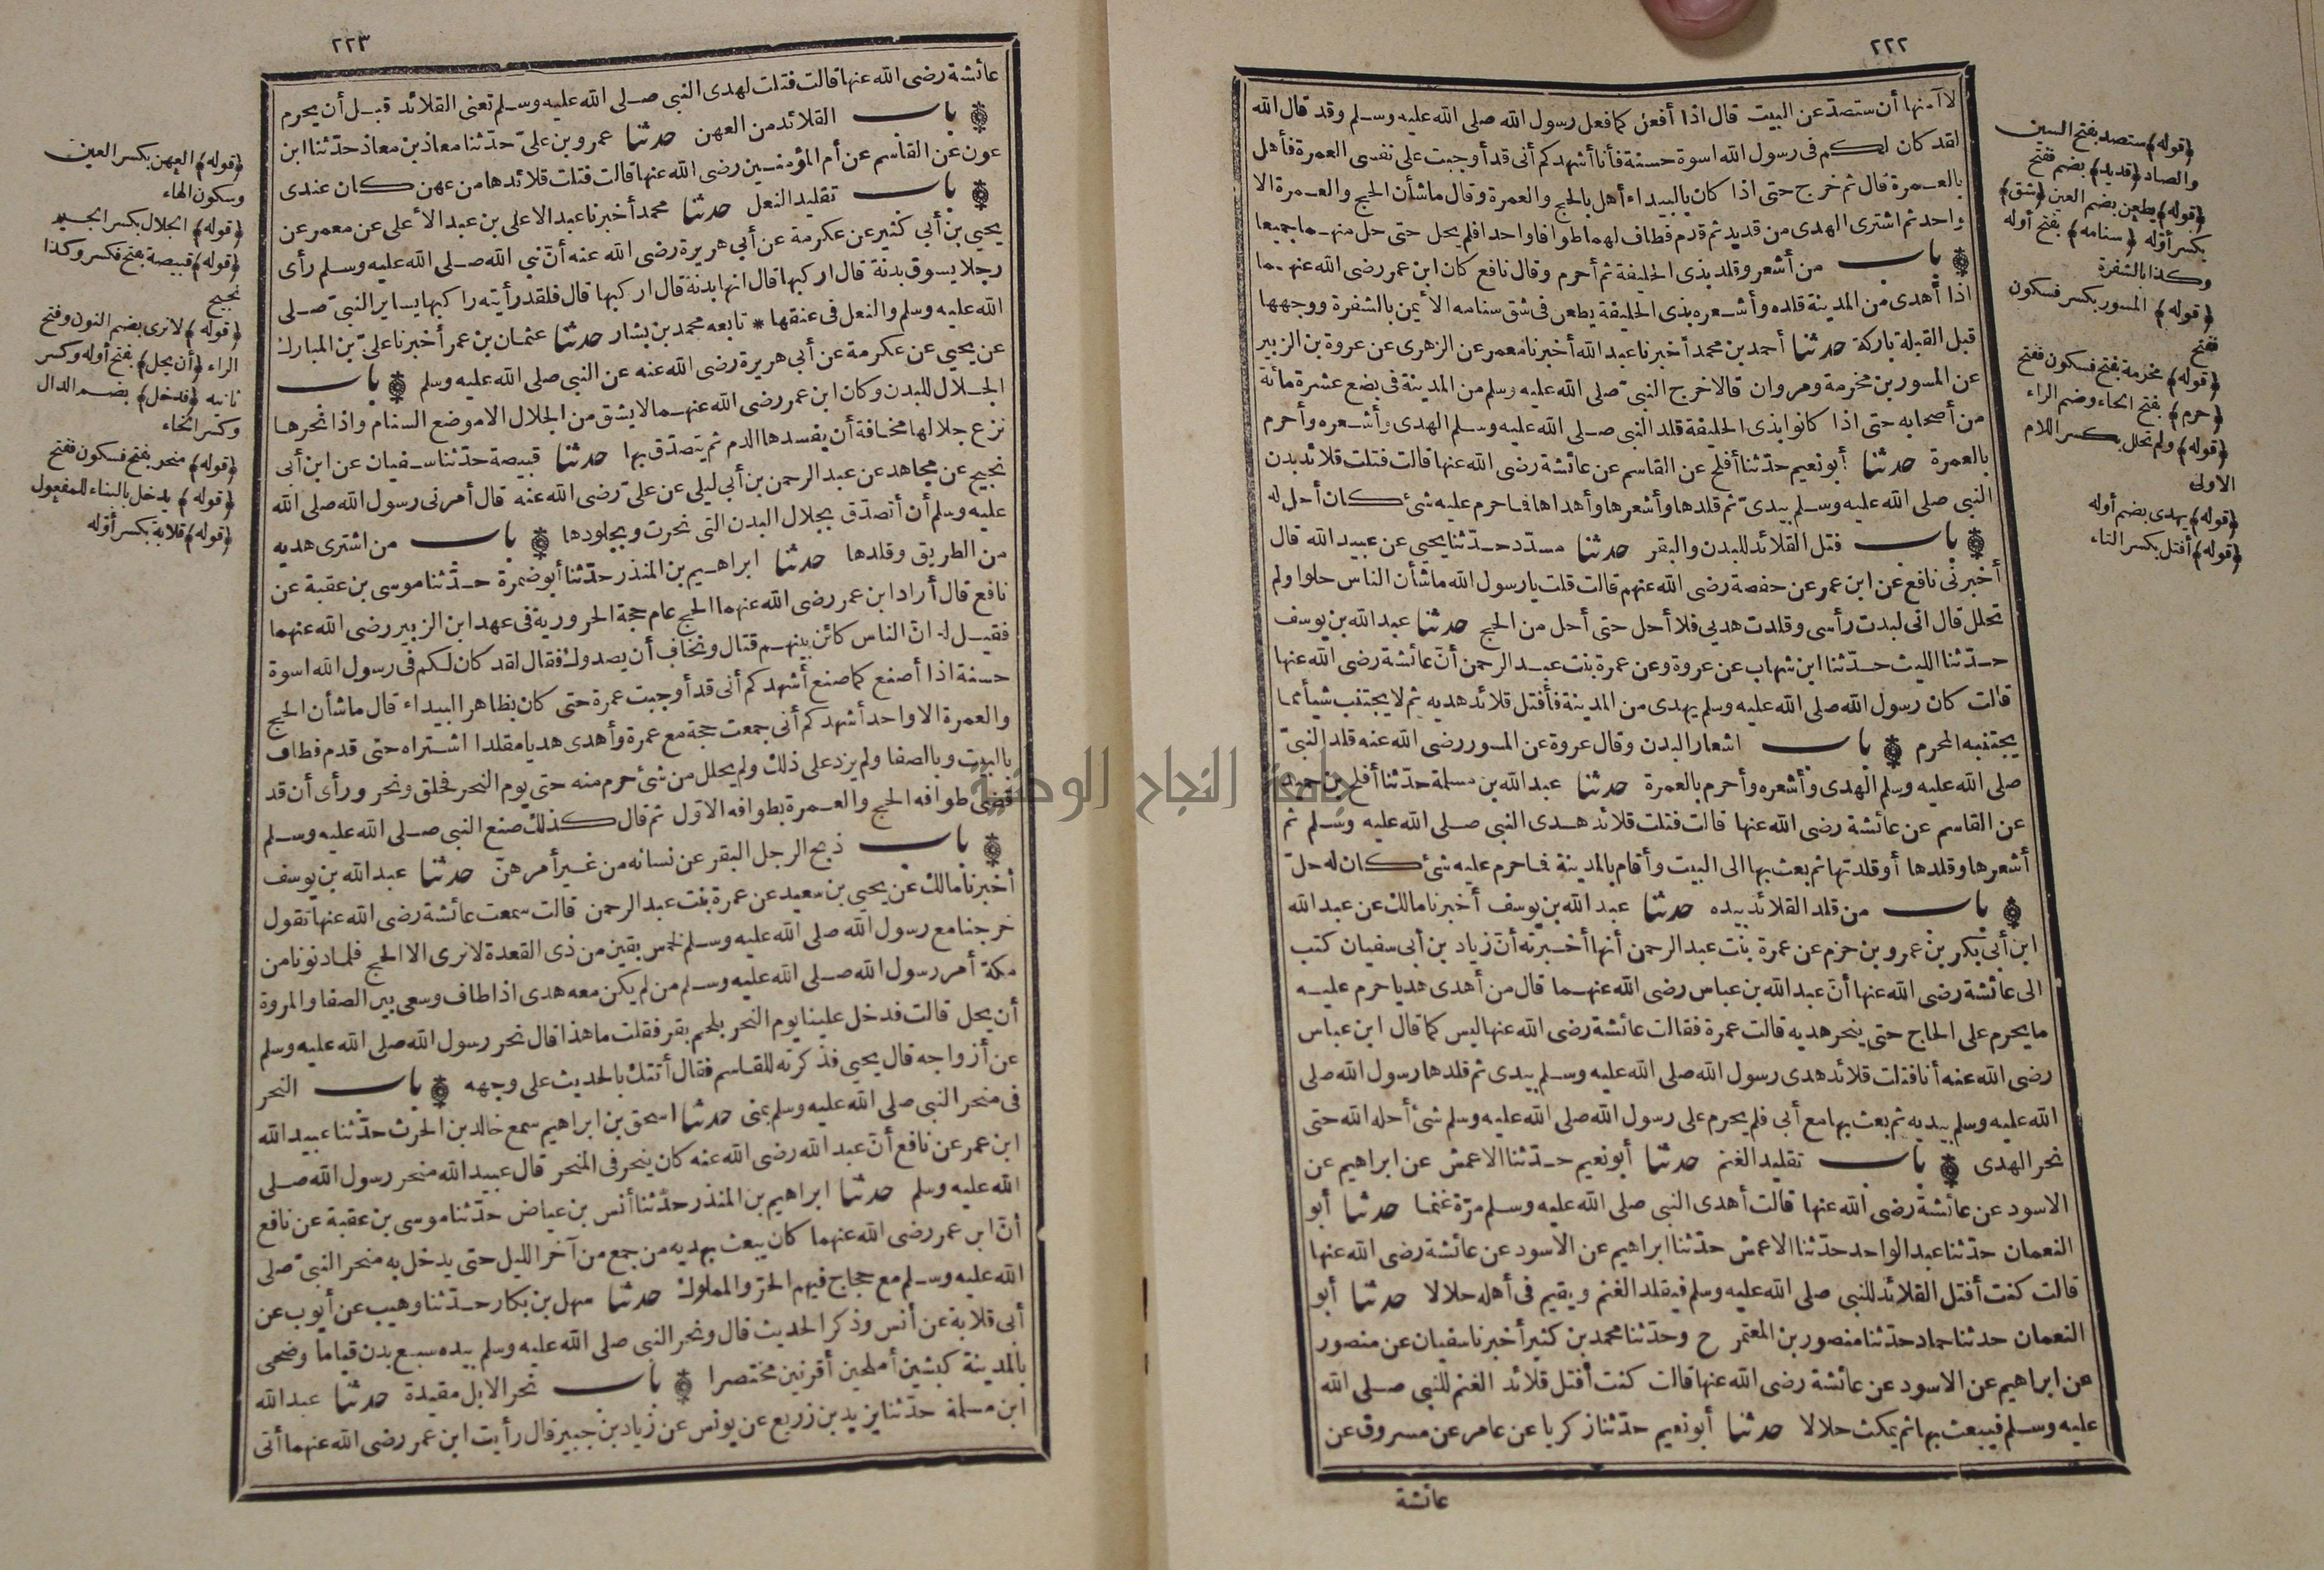 ٢٢٢
لا آمنها أن ستصدّ عن البيت قال اذا أفعل كما فعل رسول الله صلى الله عليه وسلم وقد قال الله
لقد كان لكم فى رسول الله اسوة حسنة فأنا أشهدكم أنى قد أوجبت على نفسى العمرة فأهل
بالعمرة قال ثم خرج حتى اذا كان بالبيداء أهل بالحج والعمرة وقال ما شأن الحج والعمرة الا
واحد ثم اشترى الهدى من قديد ثم قدم فطاف لهما طوافا واحدا فلم يحل حتى حل منهما جميعا
باب من أشعر وقلد بذى الحليفة ثم أحرم وقال نافع كان ابن عمر رضى الله عنهما
اذا أهدى من المدينة قلده وأشعره بذى الحليفة يطعن فى شق سنامه الأيمن بالشفرة ووجهها
قبل القبلة باركة حدثنا أحمد بن محمد أخبرنا عبد الله أخبرنا معمر عن الزهرى عن عروة بن الزبير
عن المسور بن مخرمة ومروان قالا خرج النبىّ صلى الله عليه وسلم من المدينة فى بضع عشرة مائة
من أصحابه حتى اذا كانوا بذى الحليفة قلد النبى صلى الله عليه وسلم الهدى وأشعره وأحرم
بالعمرة حدثنا أبو نعيم حدّثنا أفلح عن القاسم عن عائشة رضى الله عنها قالت فتلت قلائد بدن
النبى صلى الله عليه وسلم بيدىّ ثم قلدها وأشعرها وأهداها فما حرم عليه شئ كان أحل له
باب فتل القلائد للبدن والبقر حدثنا مسدّد حدّثنا يحيى عن عبيد الله قال
أخبرنى نافع عن ابن عمر عن حفصة رضى الله عنهم قالت قلت يا رسول الله ما شأن الناس حلوا ولم
تحلل قال انى لبدت رأسى وقلدت هديى فلا أحل حتى أحل من الحج حدثنا عبد الله بن يوسف
حدّثنا الليث حدّثنا ابن شهاب عن عروة وعن عمرة بنت عبد الرحمن أنّ عائشة رضى الله عنها
قالت كان رسول الله صلى الله عليه وسلم يهدى من المدينة فأفتل قلائد هديه ثم لا يجتنب شيأ مما
يجتنبه المحرم باب اشعار البدن وقال عروة عن المسور رضى الله عنه قلد النبىّ
صلى الله عليه وسلم الهدى وأشعره وأحرم بالعمرة حدثنا عبد الله بن مسلمة حدّثنا أفلح بن حميد
عن القاسم عن عائشة رضى الله عنها قالت فتلت قلائد هدى النبى صلى الله عليه وسلم ثم
أشعرها وقلدها أو قلدتها ثم بعث بها الى البيت وأقام بالمدينة فما حرم عليه شئ كان له حلّ
باب من قلد القلائد بيده حدثنا عبد الله بن يوسف أخبرنا مالك عن عبد الله
ابن أبى بكر بن عمرو بن حزم عن عمرة بنت عبد الرحمن أنها أخبرته أنّ زياد بن أبى سفيان كتب
الى عائشة رضى الله عنها أنّ عبد الله بن عباس رضى الله عنهما قال من أهدى هديا حرم عليه
ما يحرم على الحاج حتى ينحر هديه قالت عمرة فقالت عائشة رضى الله عنها ليس كما قال ابن عباس
رضى الله عنه أنا فتلت قلائد هدى رسول الله صلى الله عليه وسلم بيدى ثم قلدها رسول الله صلى
الله عليه وسلم بيديه ثم بعث بها مع أبى فلم يحرم على رسول الله صلى الله عليه وسلم شئ أحله الله حتى
نحر الهدى باب تقليد الغنم حدثنا أبو نعيم حدّثنا الاعمش عن ابراهيم عن
الاسود عن عائشة رضى الله عنها قالت أهدى النبى صلى الله عليه وسلم مرّة غنما حدثنا أبو
النعمان حدّثنا عبد الواحد حدّثنا الاعمش حدّثنا ابراهيم عن الاسود عن عائشة رضى الله عنها
قالت كنت أفتل القلائد للنبى صلى الله عليه وسلم فيقلد الغنم ويقيم فى أهله حلالا حدثنا أبو
النعمان حدثنا حماد حدّثنا منصور بن المعتمر ح وحدّثنا محمد بن كثير أخبرنا سفيان عن منصور
عن ابراهيم عن الاسود عن عائشة رضى الله عنها قالت كنت أفتل قلائد الغنم للنبى صلى الله
عليه وسلم فيبعث بها ثم يمكث حلالا حدثنا أبو نعيم حدّثنا زكريا عن عامر عن مسروق عن
عائشة
﴿قوله﴾ ستصد بفتح السين
والصاد ﴿قديد﴾ بضم ففتح
﴿قوله﴾ يطعن بضم العين ﴿شق﴾
بكسر أوّله ﴿سنامه﴾ بفتح أوله
وكذا بالشفرة
﴿قوله﴾ المسور بكسر فسكون
ففتح
﴿قوله﴾ مخرمة بفتح فسكون ففتح
﴿حرم﴾ بفتح الحاء وضم الراء
﴿قوله﴾ ولم تحلل بكسر اللام
الاولى
﴿قوله﴾ يهدى بضم أوله
﴿قوله﴾ أفتل بكسر التاء
٢٢٣
عائشة رضى الله عنها قالت فتلت لهدى النبى صلى الله عليه وسلم تعنى القلائد قبل أن يحرم
باب القلائد من العهن حدثنا عمرو بن علىّ حدّثنا معاذ بن معاذ حدّثنا ابن
عون عن القاسم عن أم المؤمنين رضى الله عنها قالت فتلت قلائدها من عهن كان عندى
باب تقليد النعل حدثنا محمد أخبرنا عبد الاعلى بن عبد الأعلى عن معمر عن
يحيى بن أبى كثير عن عكرمة عن أبى هريرة رضى الله عنه أنّ نبى الله صلى الله عليه وسلم رأى
رجلا يسوق بدنة قال اركبها قال انها بدنة قال اركبها قال فلقد رأيته راكبها يساير النبىّ صلى
الله عليه وسلم والنعل فى عنقها * تابعه محمد بن بشار حدثنا عثمان بن عمر أخبرنا علىّ بن المبارك
عن يحيى عن عكرمة عن أبى هريرة رضى الله عنه عن النبى صلى الله عليه وسلم باب
الجلال للبدن وكان ابن عمر رضى الله عنهما لا يشق من الجلال الا موضع السنام واذا نحرها
نزع جلالها مخافة أن يفسدها الدم ثم يتصدّق بها حدثنا قبيصة حدّثنا سفيان عن ابن أبى
نجيح عن مجاهد عن عبد الرحمن بن أبى ليلى عن علىّ رضى الله عنه قال أمرنى رسول الله صلى الله
عليه وسلم أن أتصدّق بجلال البدن التى نحرت وبجلودها باب من اشترى هديه
من الطريق وقلدها حدثنا ابراهيم بن المنذر حدّثنا أبو ضمرة حدّثنا موسى بن عقبة عن
نافع قال أراد ابن عمر رضى الله عنهما الحج عام حجة الحرورية فى عهد ابن الزبير رضى الله عنهما
فقيل له انّ الناس كائن بينهم قتال ونخاف أن يصدوك فقال لقد كان لكم فى رسول الله اسوة
حسنة اذا أصنع كما صنع أشهدكم أنى قد أوجبت عمرة حتى كان بظاهر البيداء قال ما شأن الحج
والعمرة الا واحد أشهدكم أنى جمعت حجة مع عمرة وأهدى هديا مقلدا اشتراه حتى قدم فطاف
بالبيت وبالصفا ولم يزد على ذلك ولم يحلل من شئ حرم منه حتى يوم النحر فحلق ونحر ورأى أن قد
قضى طوافه الحج والعمرة بطوافه الاوّل ثم قال كذلك صنع النبى صلى الله عليه وسلم
باب ذبح الرجل البقر عن نسائه من غير أمرهنّ حدثنا عبد الله بن يوسف
أخبرنا مالك عن يحيى بن سعيد عن عمرة بنت عبد الرحمن قالت سمعت عائشة رضى الله عنها تقول
خرجنا مع رسول الله صلى الله عليه وسلم لخمس بقين من ذى القعدة لا نرى الا الحج فلما دنونا من
مكة أمر رسول الله صلى الله عليه وسلم من لم يكن معه هدى اذا طاف وسعى بين الصفا والمروة
أن يحل قالت فدخل علينا يوم النحر بلحم بقر فقلت ما هذا قال نحر رسول الله صلى الله عليه وسلم
عن أزواجه قال يحيى فذكرته للقاسم فقال أتتك بالحديث على وجهه باب النحر
فى منحر النبى صلى الله عليه وسلم بمنى حدثنا اسحق بن ابراهيم سمع خالد بن الحرث حدّثنا عبيد الله
ابن عمر عن نافع أنّ عبد الله رضى الله عنه كان ينحر فى المنحر قال عبيد الله منحر رسول الله صلى
الله عليه وسلم حدثنا ابراهيم بن المنذر حدّثنا أنس بن عياض حدّثنا موسى بن عقبة عن نافع
أنّ ابن عمر رضى الله عنهما كان يبعث بهديه من جمع من آخر الليل حتى يدخل به منحر النبىّ صلى
الله عليه وسلم مع حجاج فيهم الحرّ والمملوك حدثنا سهل بن بكار حدّثنا وهيب عن أيوب عن
أبى قلابة عن أنس وذكر الحديث قال ونحر النبى صلى الله عليه وسلم بيده سبع بدن قياما وضحى
بالمدينة كبشين أملحين أقرنين مختصرا باب نحر الابل مقيدة حدثنا عبد الله
ابن مسلمة حدّثنا يزيد بن زريع عن يونس عن زياد بن جبير قال رأيت ابن عمر رضى الله عنهما أتى
﴿قوله﴾ العهن بكسر العين
وسكون الهاء
﴿قوله﴾ الجلال بكسر الجيم
﴿قوله﴾ قبيصة بفتح فكسر وكذا
نجيح
﴿قوله﴾ لا نرى بضم النون وفتح
الراء ﴿أن يحل﴾ بفتح أوله وكسر
ثانيه ﴿فدخل﴾ بضم الدال
وكسر الخاء
﴿قوله﴾ منحر بفتح فسكون ففتح
﴿قوله﴾ يدخل بالبناء للمفعول
﴿قوله﴾ قلابة بكسر أوّله
جامعة النجاح الوطنية